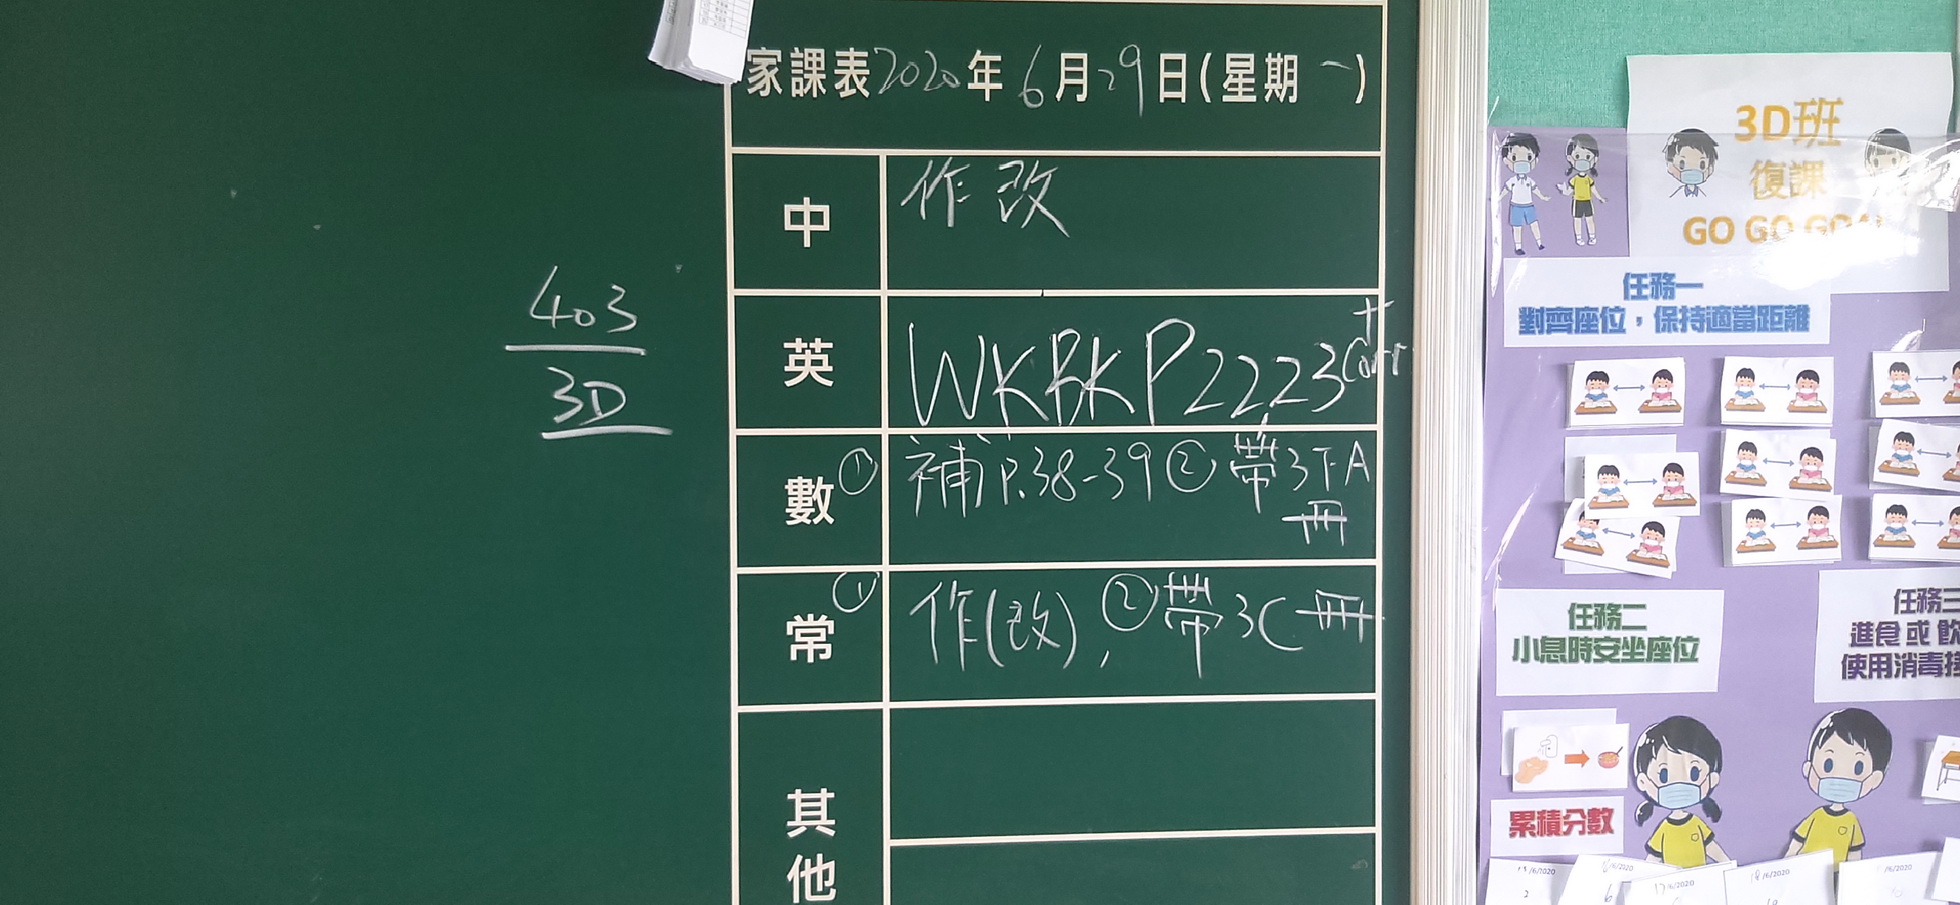 家課表2020年6月29日(星期一)
中
作改
英
WKBK P22,23
+
Corr
數
① 補 P.38-39 ② 帶3下A
冊
常
① 作(改), ② 帶3C冊
其
他
403
3D
3D班
復課
GO GO
任務一
對齊座位，保持適當距離
任務二
小息時安坐座位
進食或飲
使用消毒
累積分數
/6/2020
2
/6/2020
6
17/6/2020
18/6/2020
19
/6/2020